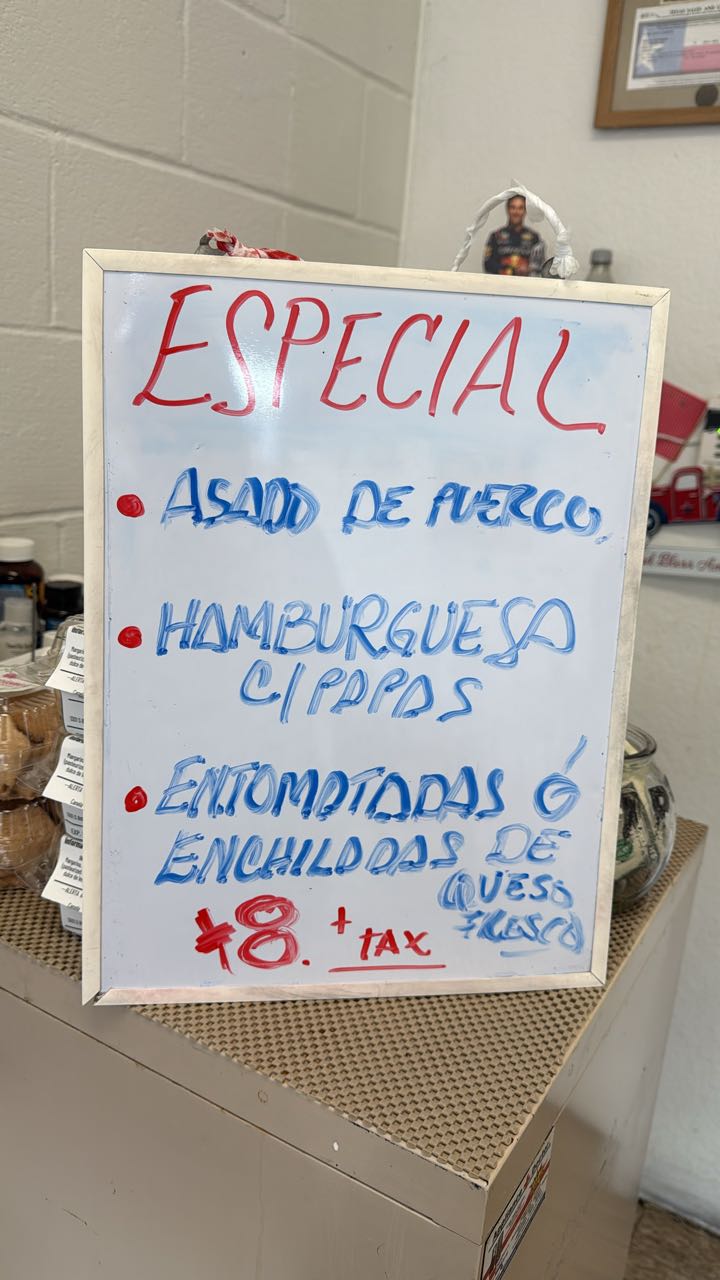 ESPECIAL
• ASADO DE PUERCO
• HAMBURGUESA
C/PAPAS
• ENTOMATADAS Ó
ENCHILADAS DE
QUESO
FRESCO
$8. + TAX